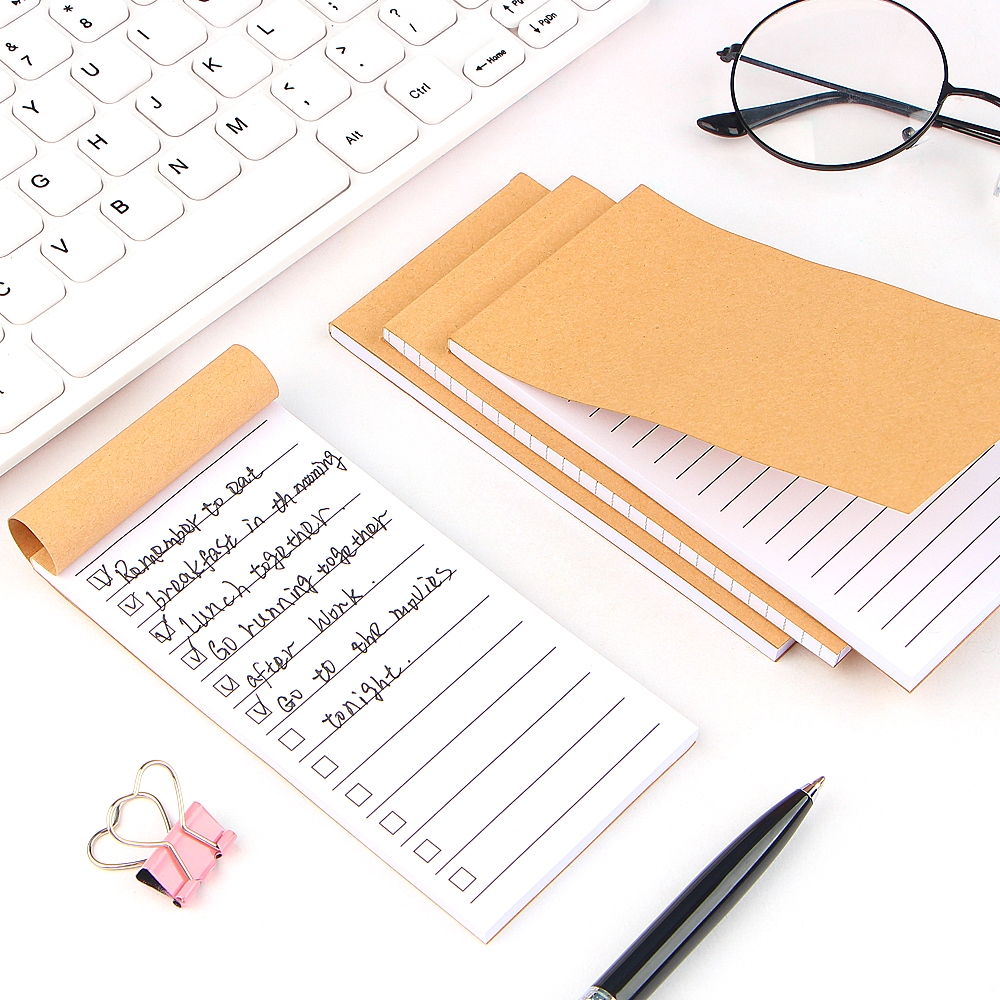 * 8
& 7
? /
PgUp
PgDn
I
L
> .
← Home
U
K
< ,
Ctrl
Y
J
M
Alt
H
N
G
B
V
C
Remember to eat
breakfast in th morning
Lunch together.
Go running together
after work.
Go to the movies
tonight.